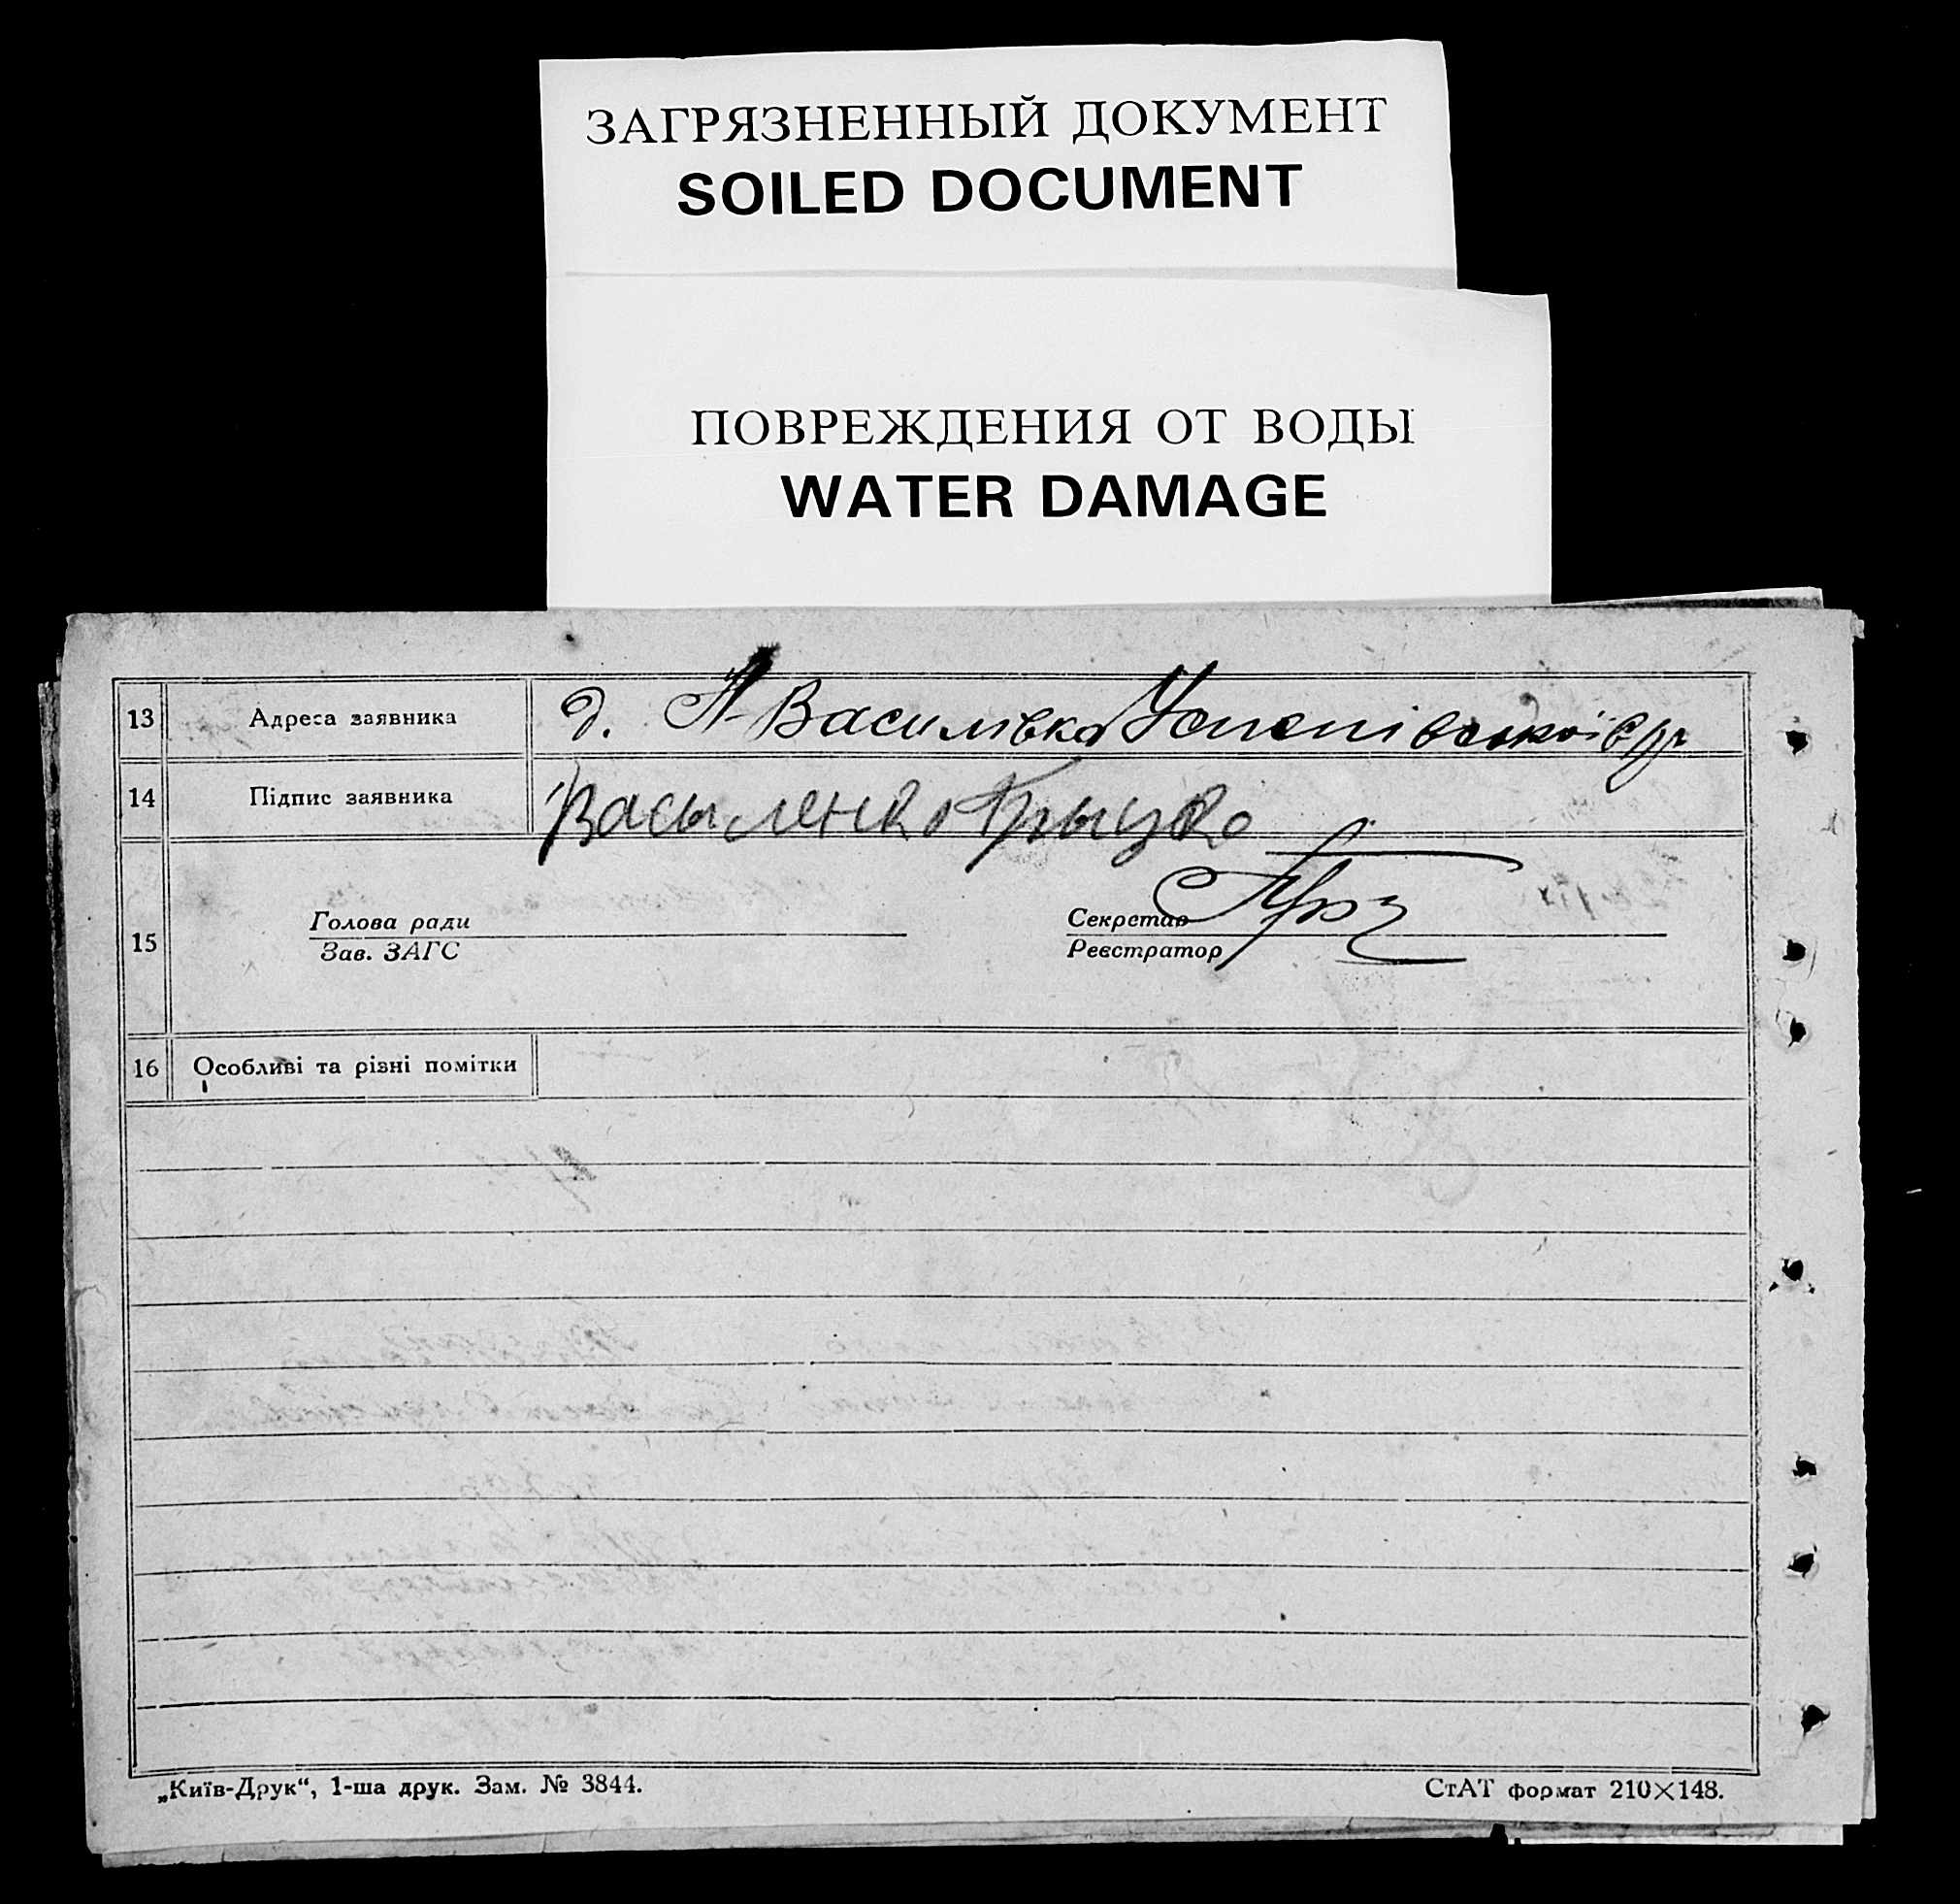 ЗАГРЯЗНЕННЫЙ ДОКУМЕНТ
SOILED DOCUMENT
ПОВРЕЖДЕНИЯ ОТ ВОДЫ
WATER DAMAGE
13 Адреса заявника д. Василівка Успенівської
14 Підпис заявника Василенко Грыцко
15 Голова ради Секретар
Зав. ЗАГС Реєстратор
16 Особливі та різні помітки
„Київ-Друк“, 1-ша друк. Зам. № 3844. СтАТ формат 210×148.